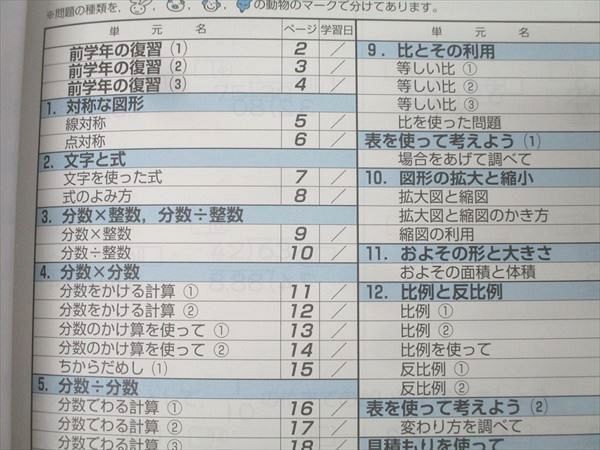 ※問題の種類を、
の動物のマークで分けてあります。
単元名 ページ 学習日
前学年の復習 (1) 2 /
前学年の復習 (2) 3 /
前学年の復習 (3) 4 /
1. 対称な図形
線対称 5 /
点対称 6 /
2. 文字と式
文字を使った式 7 /
式のよみ方 8 /
3. 分数×整数，分数÷整数
分数×整数 9 /
分数÷整数 10 /
4. 分数×分数
分数をかける計算 ① 11 /
分数をかける計算 ② 12 /
分数のかけ算を使って ① 13 /
分数のかけ算を使って ② 14 /
ちからだめし (1) 15 /
5. 分数÷分数
分数でわる計算 ① 16 /
分数でわる計算 ② 17 /
分数でわる計算 ③ 18 /
単元名
9. 比とその利用
等しい比 ①
等しい比 ②
等しい比 ③
比を使った問題
表を使って考えよう (1)
場合をあげて調べて
10. 図形の拡大と縮小
拡大図と縮図
拡大図と縮図のかき方
縮図の利用
11. およその形と大きさ
およその面積と体積
12. 比例と反比例
比例 ①
比例 ②
比例を使って
反比例 ①
反比例 ②
表を使って考えよう (2)
変わり方を調べて
見積もりを使って